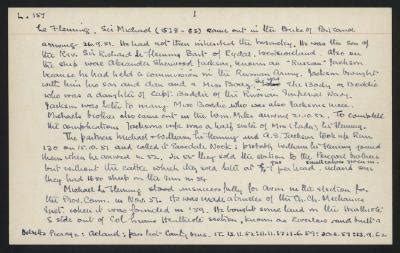 L. 157
1
le Fleming, Sir Michael (1828 - 83) came out in the Duke of Portland
arriving 26.9.51. He had not then inherited the baronetcy. He was the son of
the Rev. Sir Richard le Fleming Bart of Rydal, Westmoreland. Also on
the ship were Alexander Sherwood Jackson, known as "Russian" Jackson
because he had held a commission in the Russian Army. Jackson brought
with him his son and dau and a Miss Body. The Body or Boddie
who was a daughter of Capt. Boddie of the Russian Imperial Navy.
Jackson was later to marry Miss Boddie who was also Jackson's niece.
Michael's brother also came out in the Wm. Miles arriving 21.00.52. To complete
the complications Jackson's wife was a half sister of Mrs (Lady) le Fleming.
The partners Michael & William le Fleming and A.S. Jackson took up Run
130 on 15.10.51 and called it Rosedale Nook; probably William le Fleming joined
them when he arrived in 52. In 55 they sold the station to the Percival brothers
but without the cattle which they sold later at £7 per head. Acland says
they had 1650 sheep on the run in 54
Michael le Fleming stood unsuccessfully for Avon in the election for
the Prov. Coun. in Nov. 57. He was made a trustee of the Ch.Ch. Mechanics
Inst. when it was founded in '59. He bought some land on the Heathcote
S side out of Col. section, known as and built a
Acland; Ch.Ch.